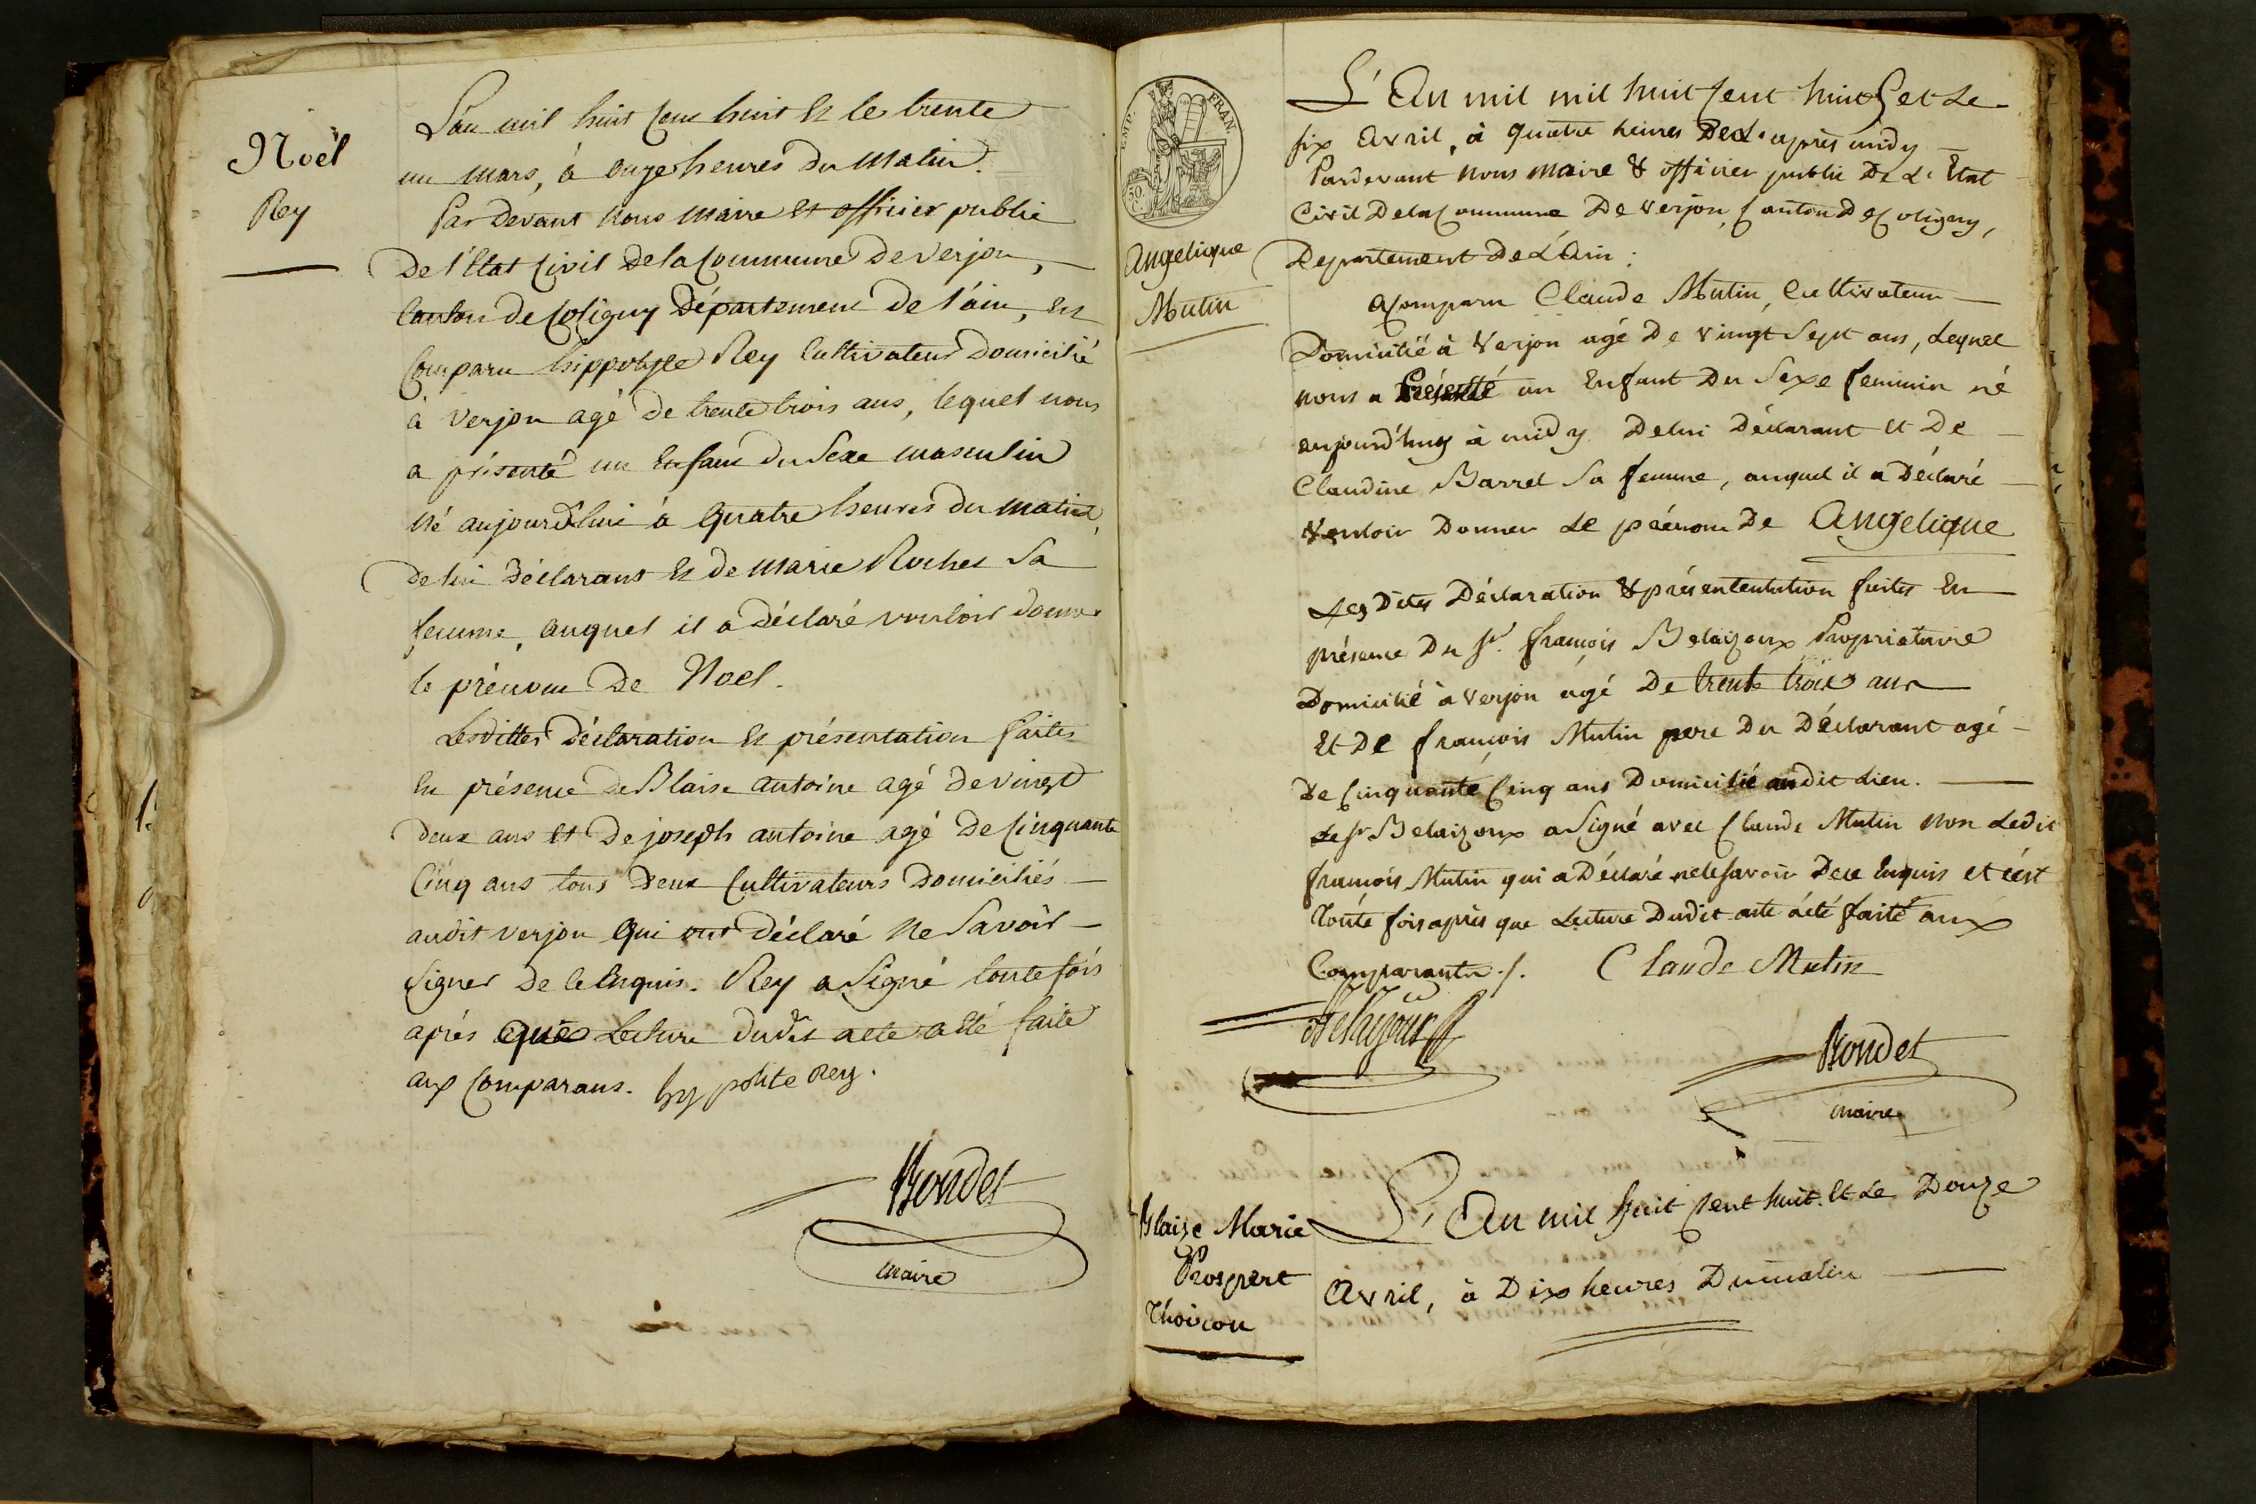 Noël
Rey
L'an mil huit cent huit et le trente
un mars, à onze heures du matin.
Par devant nous maire et officier public
de l'état civil de la commune de verjon,
canton de coligny département de l'ain, est
comparu hippolyte Rey cultivateur domicilié
à verjon agé de trente trois ans, lequel nous
a présenté un enfant du sexe masculin
né aujourd'hui à quatre heures du matin,
de lui déclarant et de marie Rochet sa
femme, auquel il a déclaré vouloir donner
le prénom de Noel.
Lesdittes déclaration et présentation faites
en présence de Blaise antoine agé de vingt
deux ans et de joseph antoine agé de cinquante
cinq ans tous deux cultivateurs domiciliés
audit verjon qui ont déclaré ne savoir
signer de ce enquis. Rey a signé toute fois
après que lecture dudit acte a été faite
aux comparans. hyppolite Rey.
Bondet
maire
EMP. FRAN.
50.
C.
Angelique
Mutin
L'An mil mil huit cent huit et le
six avril, à quatre heures de l'après midy
Pardevant nous maire & officier public de l'Etat
Civil de la Commune de verjon, canton de Coligny,
Departement de L'Ain:
a comparu Claude Mutin, cultivateur
Domicilié à Verjon agé de vingt sept ans, Lequel
nous a Présenté un enfant du sexe feminin né
aujourd'huy à midy de lui déclarant et de
Claudine Barret sa femme, auquel il a déclaré
vouloir donner le prénom de Angelique
Les dites déclaration & présententation faites en
présence du Sr. françois Belaizoux Propriataire
Domicilié à verjon agé de trente trois ans
Et de françois Mutin pere du déclarant agé
de cinquante cinq ans domicilié audit Lieu.
Le Sr Belaizoux a signé avec Claude Mutin non ledit
françois Mutin qui a déclaré ne le savoir de ce enquis et c'est
toute fois après que lecture dudit acte a été faite aux
Comparants ./. Claude Mutin
Bondet
maire
Blaize Marie
Prospert
Thoiron
L'An mil huit cent huit et le Douze
Avril, à Dix heures du matin